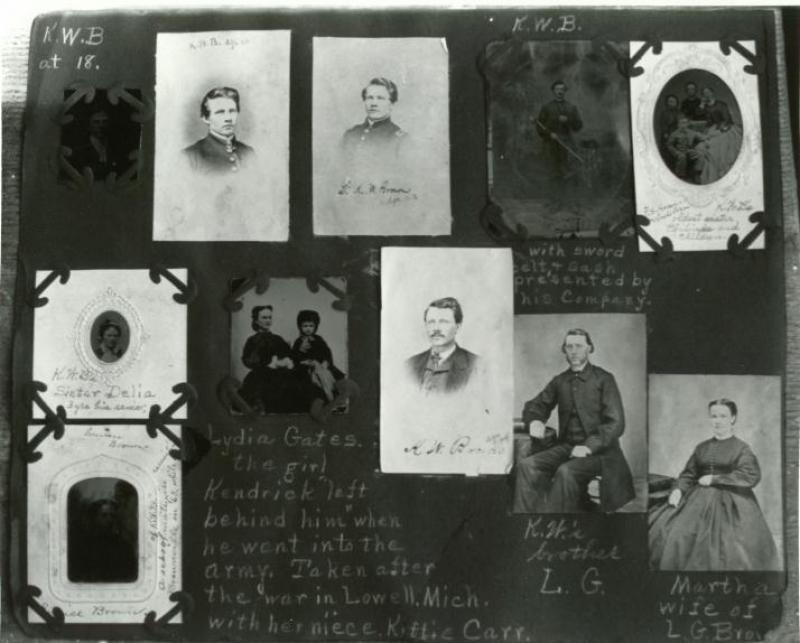 K.W.B
at 18.
K.W.B.
Lt. K. W. Brown
K.W.B's
oldest sister
and
children
with sword
belt, + sash
presented by
his Company.
K.W.B's
Sister Delia
3 yrs his senior.
K. W. Brown
Lydia Gates.
"the girl
Kendrick left
behind him" when
he went into the
army. Taken after
the war in Lowell, Mich.
with her niece, Kittie Carr.
Brown
Brown
K.W's
brother
L. G.
Martha
wife of
L G Brown